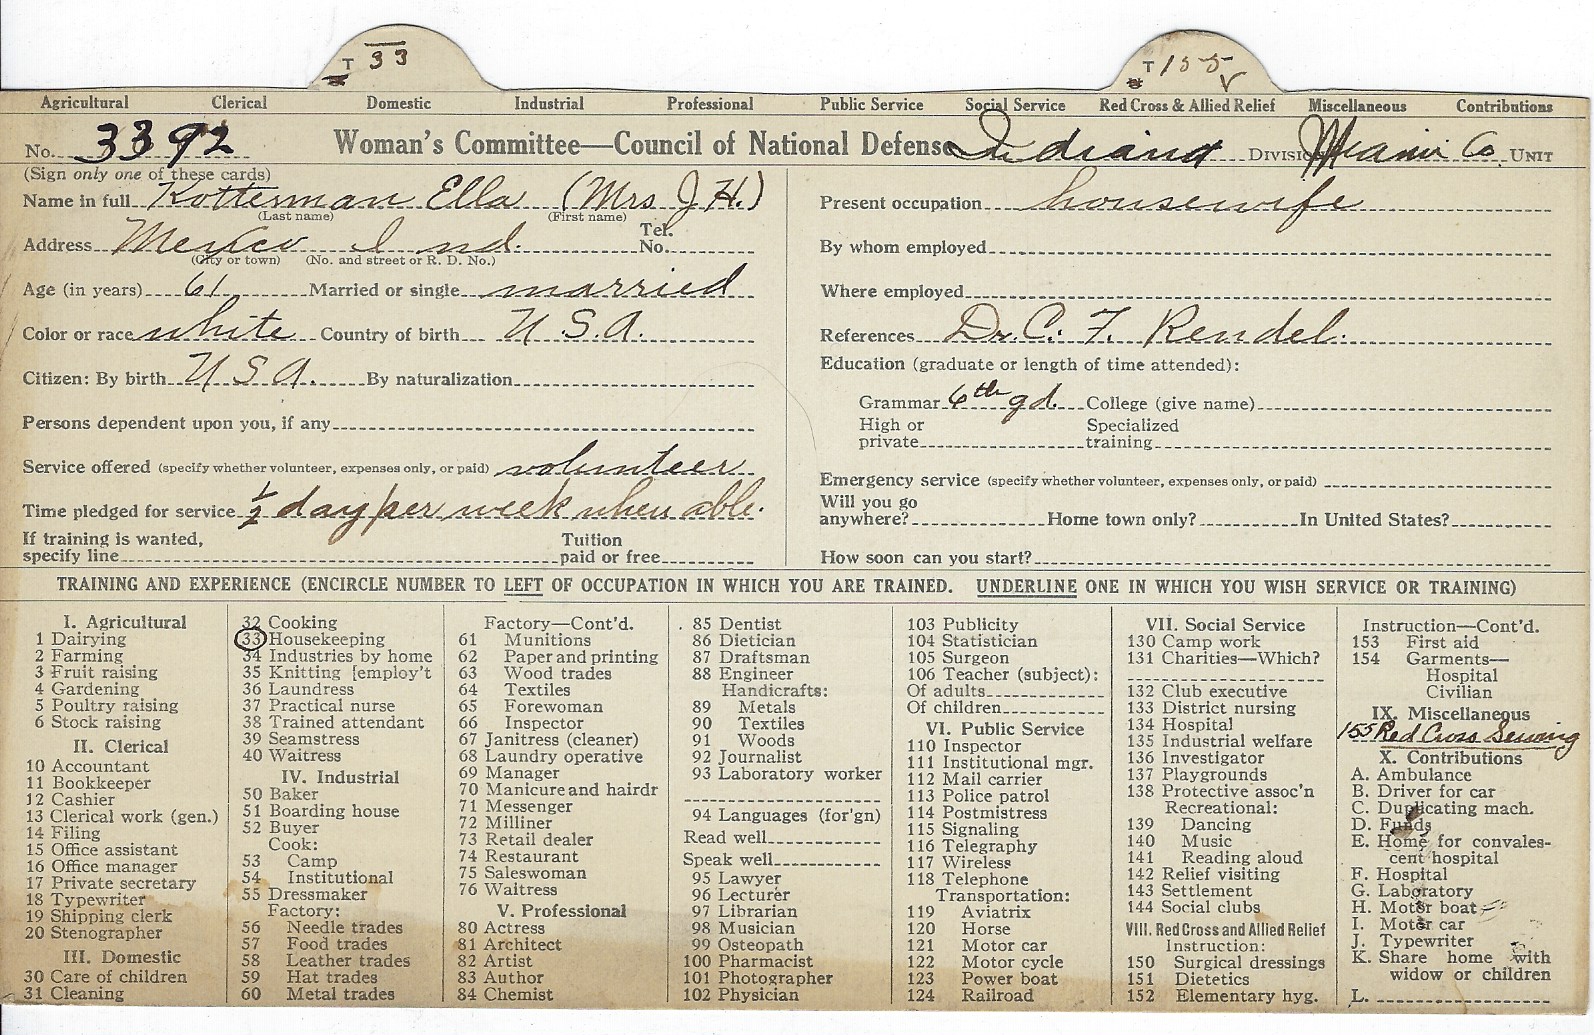 T 33
T 155
Agricultural Clerical Domestic Industrial Professional Public Service Social Service Red Cross & Allied Relief Miscellaneous Contributions
No. 3392 Woman's Committee—Council of National Defense Indiana DIVISION Miami Co. UNIT
(Sign only one of these cards)
Name in full Kotterman Ella (Mrs J H.)
(Last name) (First name)
Address Mexico Ind. Tel. No.
(City or town) (No. and street or R. D. No.)
Age (in years) 61 Married or single married
Color or race white Country of birth U.S.A.
Citizen: By birth U S A. By naturalization
Persons dependent upon you, if any
Service offered (specify whether volunteer, expenses only, or paid) volunteer
Time pledged for service 1/2 day per week when able.
If training is wanted, specify line Tuition paid or free
Present occupation housewife
By whom employed
Where employed
References Dr. C. F. Rendel.
Education (graduate or length of time attended):
Grammar 6th gd. College (give name)
High or private Specialized training
Emergency service (specify whether volunteer, expenses only, or paid)
Will you go anywhere? Home town only? In United States?
How soon can you start?
TRAINING AND EXPERIENCE (ENCIRCLE NUMBER TO LEFT OF OCCUPATION IN WHICH YOU ARE TRAINED. UNDERLINE ONE IN WHICH YOU WISH SERVICE OR TRAINING)
I. Agricultural
1 Dairying
2 Farming
3 Fruit raising
4 Gardening
5 Poultry raising
6 Stock raising
II. Clerical
10 Accountant
11 Bookkeeper
12 Cashier
13 Clerical work (gen.)
14 Filing
15 Office assistant
16 Office manager
17 Private secretary
18 Typewriter
19 Shipping clerk
20 Stenographer
III. Domestic
30 Care of children
31 Cleaning
32 Cooking
33 Housekeeping
34 Industries by home
35 Knitting [employ't
36 Laundress
37 Practical nurse
38 Trained attendant
39 Seamstress
40 Waitress
IV. Industrial
50 Baker
51 Boarding house
52 Buyer
Cook:
53 Camp
54 Institutional
55 Dressmaker
Factory:
56 Needle trades
57 Food trades
58 Leather trades
59 Hat trades
60 Metal trades
Factory—Cont'd.
61 Munitions
62 Paper and printing
63 Wood trades
64 Textiles
65 Forewoman
66 Inspector
67 Janitress (cleaner)
68 Laundry operative
69 Manager
70 Manicure and hairdr
71 Messenger
72 Milliner
73 Retail dealer
74 Restaurant
75 Saleswoman
76 Waitress
V. Professional
80 Actress
81 Architect
82 Artist
83 Author
84 Chemist
85 Dentist
86 Dietician
87 Draftsman
88 Engineer
Handicrafts:
89 Metals
90 Textiles
91 Woods
92 Journalist
93 Laboratory worker
94 Languages (for'gn)
Read well
Speak well
95 Lawyer
96 Lecturer
97 Librarian
98 Musician
99 Osteopath
100 Pharmacist
101 Photographer
102 Physician
103 Publicity
104 Statistician
105 Surgeon
106 Teacher (subject):
Of adults
Of children
VI. Public Service
110 Inspector
111 Institutional mgr.
112 Mail carrier
113 Police patrol
114 Postmistress
115 Signaling
116 Telegraphy
117 Wireless
118 Telephone
Transportation:
119 Aviatrix
120 Horse
121 Motor car
122 Motor cycle
123 Power boat
124 Railroad
VII. Social Service
130 Camp work
131 Charities—Which?
132 Club executive
133 District nursing
134 Hospital
135 Industrial welfare
136 Investigator
137 Playgrounds
138 Protective assoc'n
Recreational:
139 Dancing
140 Music
141 Reading aloud
142 Relief visiting
143 Settlement
144 Social clubs
VIII. Red Cross and Allied Relief
Instruction:
150 Surgical dressings
151 Dietetics
152 Elementary hyg.
Instruction—Cont'd.
153 First aid
154 Garments—
Hospital
Civilian
IX. Miscellaneous
155 Red Cross Sewing
X. Contributions
A. Ambulance
B. Driver for car
C. Duplicating mach.
D. Funds
E. Home for convales-
cent hospital
F. Hospital
G. Laboratory
H. Motor boat
I. Motor car
J. Typewriter
K. Share home with
widow or children
L.